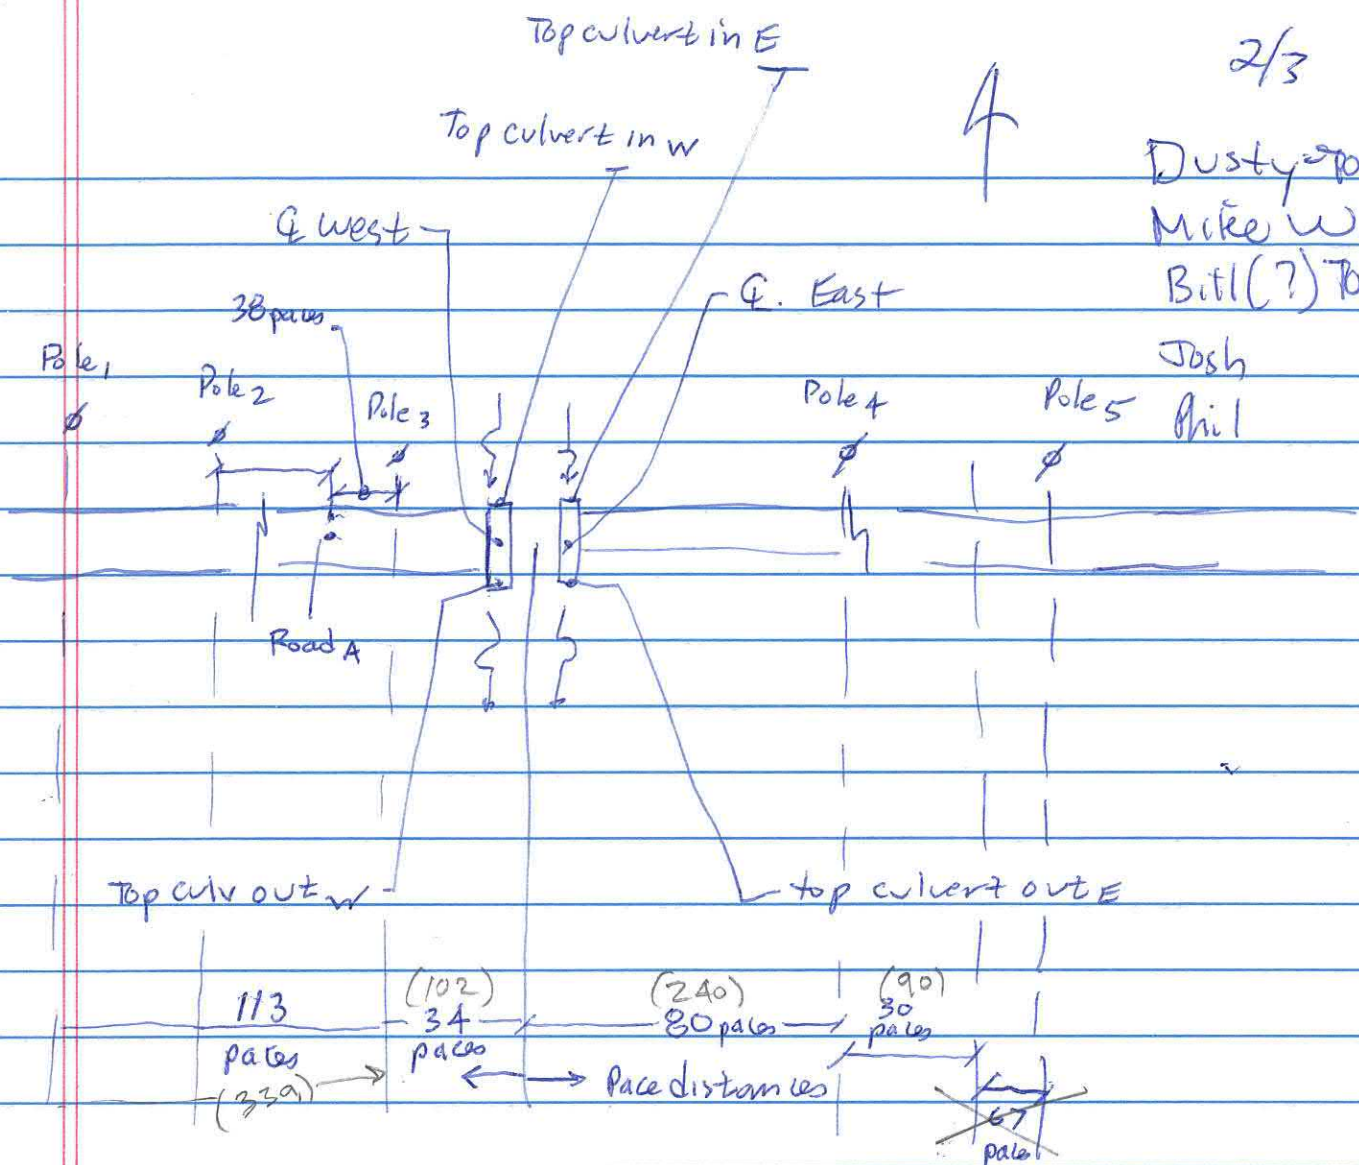 Top culvert in E
2/3
Top culvert in W
Dusty
Mike W
℄ West
Bill (?) TO
38 paces
℄. East
Pole 1
Pole 2
Pole 3
Pole 4
Pole 5
Josh
Phil
Road A
Top culv out W
top culvert out E
113
paces
(339)
(102)
34
paces
(240)
80 paces
(90)
30
paces
Pace distances
67
paces